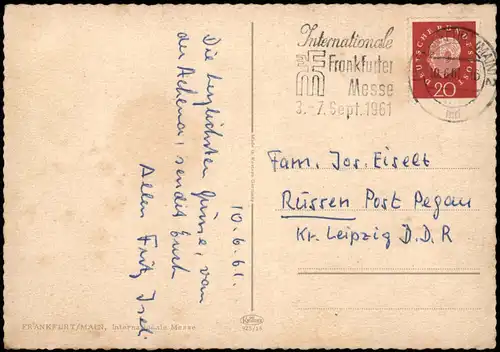 10.6.61.
Die herzlichsten Grüsse, von
der Achema, sendet Euch
Allen Fritz
FRANKFURT/MAIN, Internationale Messe
Internationale
Frankfurter
Messe
3.-7. Sept. 1961
DEUTSCHE BUNDESPOST
20
Fam. Jos. Eiselt
Rüssen Post Pegau
Kr. Leipzig D.D.R